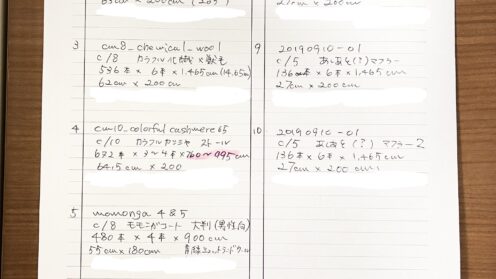 63cm × 200cm (205)
3 cm8_chemical_wool
c/8 カラフル化繊×獣毛
536本 × 6本 × 1.465cm (14.65m)
62cm × 200cm
4 cm10_colorful cashmere65
c/10 カラフルカシミヤ ストール
672本 × 3~4本 × 760~795cm
64.5cm × 200
5 momonga 4&5
c/8 モモンガコート 大判(男性向)
480本 × 4本 × 900cm
55cm × 180cm
27cm × 200cm
9 20190910-01
c/5 あしあそ(?)マフラー
136本 × 6本 × 1.465cm
27cm × 200cm
10 20190910-01
c/5 あしあそ(?)マフラー2
136本 × 6本 × 1.465cm
27cm × 200cm